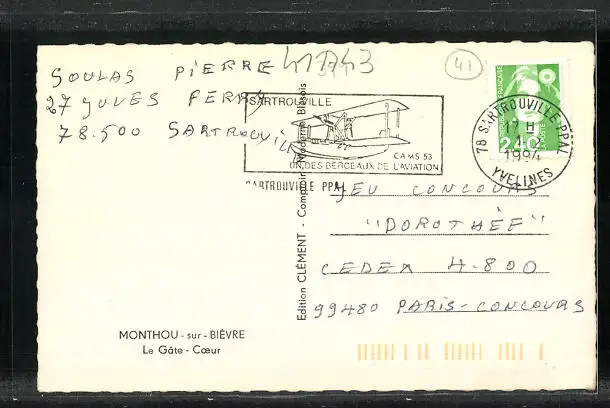 SOULAS PIERRE 41743
27 JULES FERRY
78.500 SARTROUVILLE
41
SARTROUVILLE
CAMS 53
UN DES BERCEAUX DE L'AVIATION
SARTROUVILLE PPAL
78 SARTROUVILLE PPAL
17 H
1994
YVELINES
2,40
Edition CLÉMENT - Comptoir Moderne Blésois
JEU CONCOURS
"DOROTHÉE"
CEDEX 4.800
99480 PARIS-CONCOURS
MONTHOU-sur-BIÈVRE
Le Gâte-Cœur